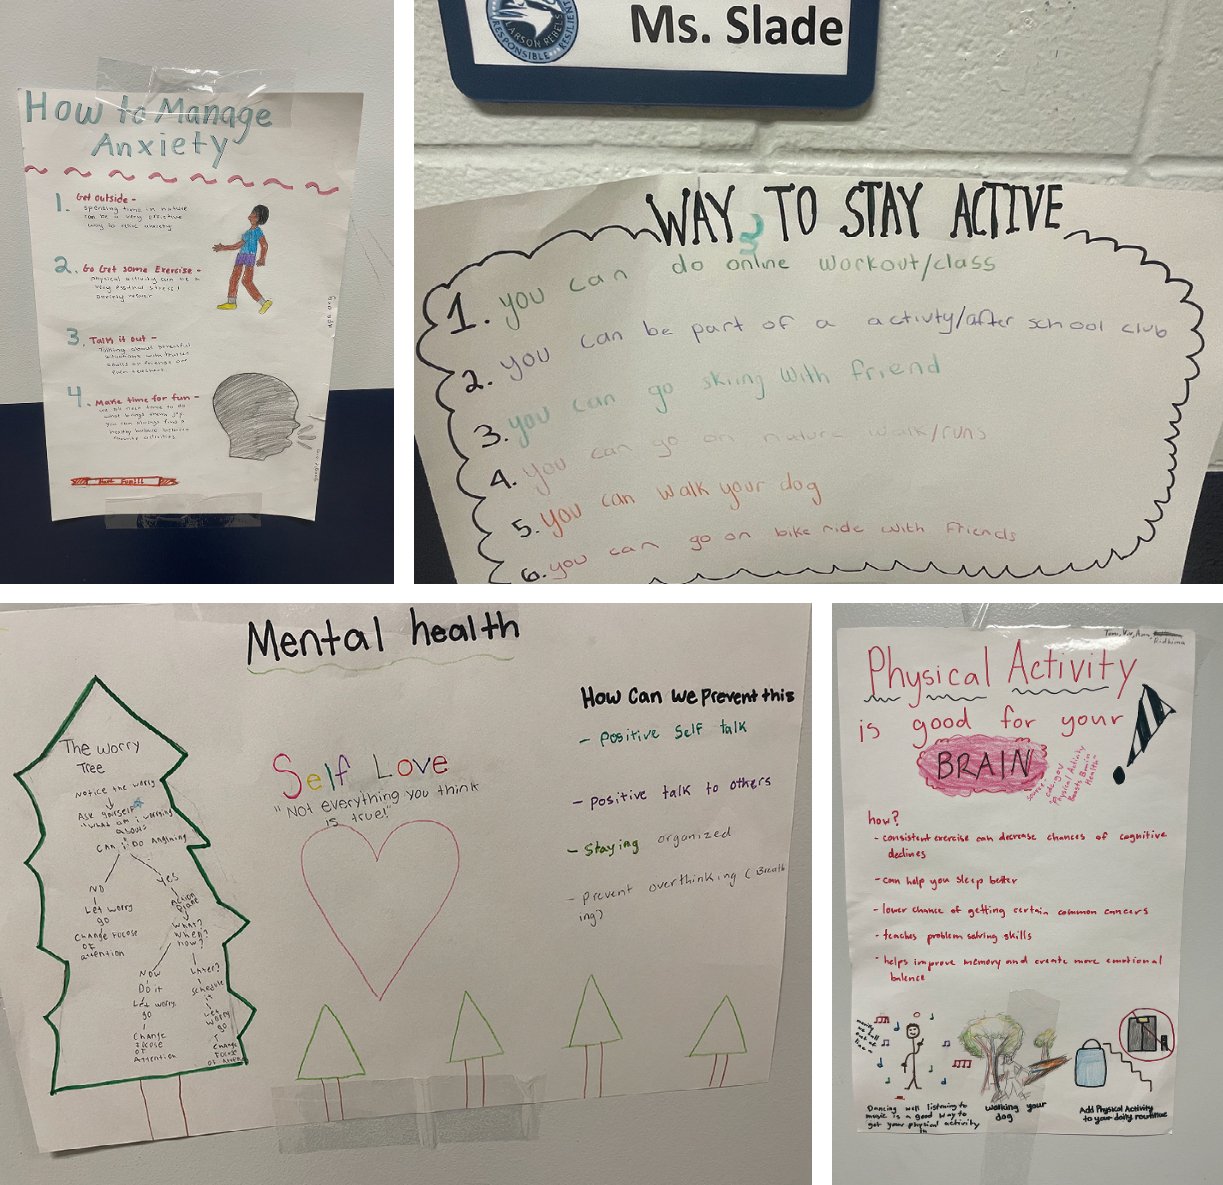 How to Manage
Anxiety
1. Get outside -
spending time in nature
can be a very effictive
way to relive anxiety
2. Go Get some Exercise -
physical activity can be a
very essntial stress &
anxiety
3. Talk it out -
Talking about stressful
situations with
or friends or
even teachers.
4. Make time for fun -
we all need time to do
what brings them joy
you can always find a
healthy balance between
activities
Have Fun!!!
Ms. Slade
LARSON REBELS
RESPONSIBLE
RESILIENT
WAYS TO STAY ACTIVE
1. you can do online workout/class
2. you can be part of a activty/after school club
3. you can go skiing with friend
4. you can go on nature walk/runs
5. you can walk your dog
6. you can go on bike ride with friends
Mental health
The worry
Tree
Notice the worry
Ask yourself
"what am i worrying
about"
Can i Do Anything
NO
Let worry
go
Change Focose
of
attention
yes
Action
plane
what?
when?
how?
Now
Do it
Let worry
go
Change
focose
of
Attention
Later?
schedule
it
Let
worry
go
Change
Focose
of
Self Love
"Not everything you think
is true!"
How Can we Prevent this
- positive self talk
- positive talk to others
- staying organized
- Prevent overthinking (Breath
ing)
Tom, Vir, Ann,
Ridhima
Physical Activity
is good for your
BRAIN
Source:
cdc.gov
"Physical Activity
Boosts Brain
Health"
how?
- consistent exercise can decrease chances of cognitive
declines
- can help you sleep better
- lower chance of getting certain common cancers
- teaches problem solving skills
- helps improve memory and create more emotional
balence
Dancing well listening to
music is a good way to
get your physical activity
in
Walking your
dog
Add Physical Activity
to your daily routine